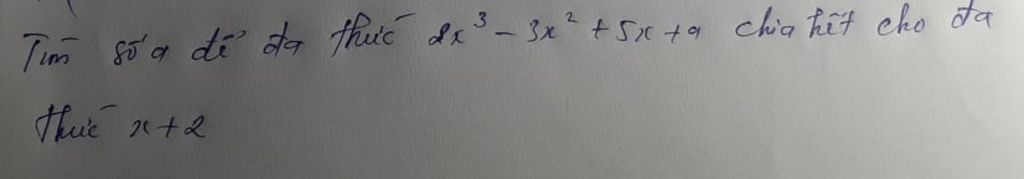 Tìm số a để đa thức 2x³ - 3x² + 5x + a chia hết cho đa
thức x + 2